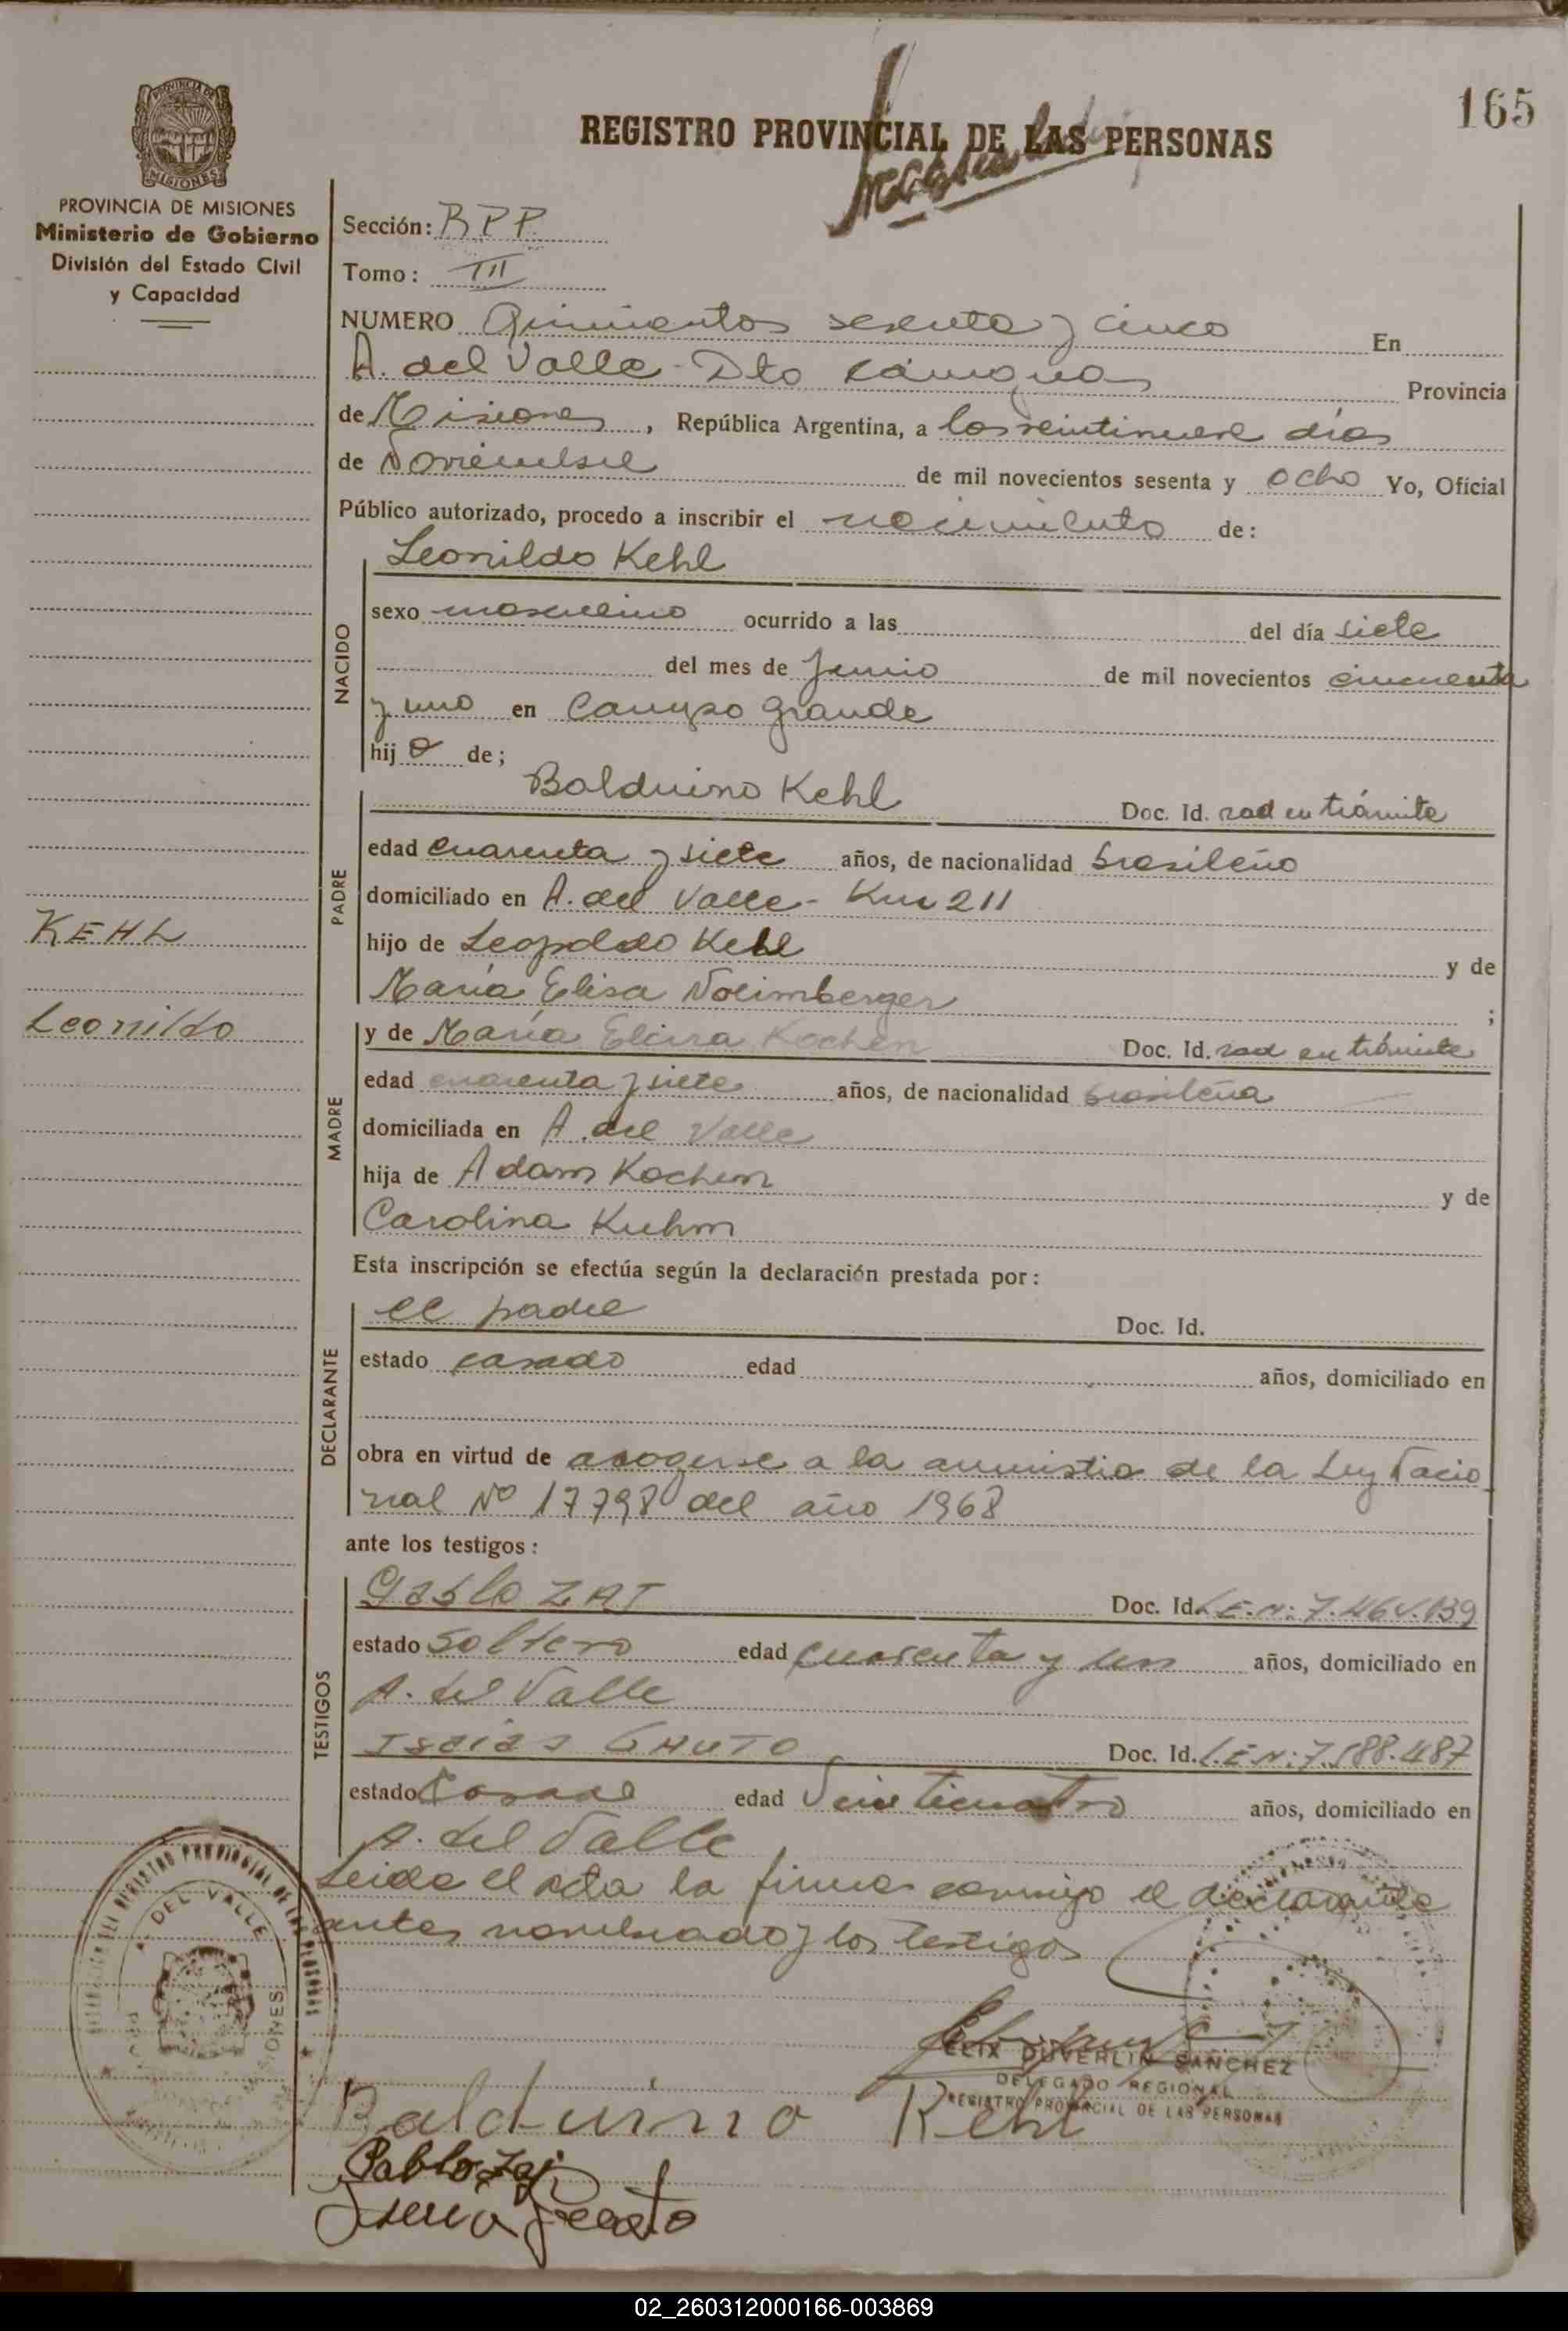 165
REGISTRO PROVINCIAL DE LAS PERSONAS
PROVINCIA DE MISIONES
Ministerio de Gobierno
División del Estado Civil
y Capacidad
Sección: RPP
Tomo: III
NUMERO Quinientos sesenta y cinco En
A. del Valle - Dto Cainguas Provincia
de Misiones, República Argentina, a los veintinueve días
de Noviembre de mil novecientos sesenta y ocho Yo, Oficial
Público autorizado, procedo a inscribir el nacimiento de:
NACIDO
Leonildo Kehl
sexo masculino ocurrido a las del día siete
del mes de Junio de mil novecientos cincuenta
y uno en Campo Grande
hijo de;
PADRE
Balduino Kehl Doc. Id. rad en trámite
edad cuarenta y siete años, de nacionalidad brasileño
domiciliado en A. del Valle - Km 211
hijo de Leopoldo Kehl y de
María Elisa Noeimberger ;
KEHL
Leonildo
MADRE
y de María Elcira Kochen Doc. Id. rad en trámite
edad cuarenta y siete años, de nacionalidad brasileña
domiciliada en A. del Valle
hija de Adam Kochem y de
Carolina Kuhm
Esta inscripción se efectúa según la declaración prestada por:
DECLARANTE
el padre Doc. Id.
estado casado edad años, domiciliado en
obra en virtud de acogerse a la amnistia de la Ley Nacio
nal Nº 17798 del año 1968
ante los testigos:
TESTIGOS
ZAJ Doc. Id. L.E.N:
estado soltero edad cuarenta y un años, domiciliado en
A. del Valle
Isaias GAUTO Doc. Id. L.E.N: 7.588.487
estado Casado edad Veinticuatro años, domiciliado en
A. del Valle
Leida el acta la firma conmigo el declarante
antes nombrado y los testigos
A. DEL VALLE
MISIONES
FELIX DUVERLIN SANCHEZ
DELEGADO REGIONAL
REGISTRO PROVINCIAL DE LAS PERSONAS
Balduinno Kehl
Pablo Zaj
02_260312000166-003869